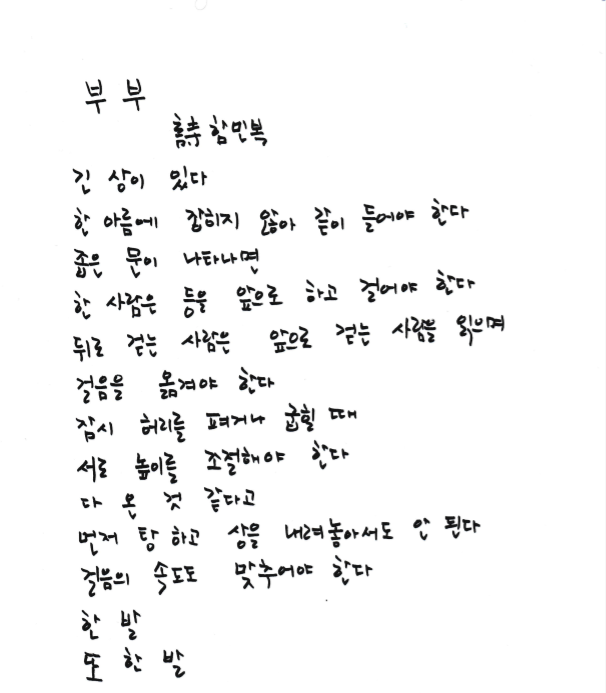 부 부
함민복
긴 상이 있다
한 아름에 잡히지 않아 같이 들어야 한다
좁은 문이 나타나면
한 사람은 등을 앞으로 하고 걸어야 한다
뒤로 걷는 사람은 앞으로 걷는 사람을 읽으며
걸음을 옮겨야 한다
잠시 허리를 펴거나 굽힐 때
서로 높이를 조절해야 한다
다 온 것 같다고
먼저 탕 하고 상을 내려놓아서도 안 된다
걸음의 속도도 맞추어야 한다
한 발
또 한 발